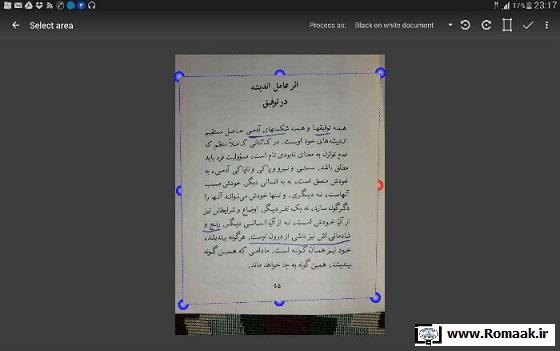 23:17
17%
Select area
Process as:
Black on white document
اثر عامل اندیشه
در توفیق
همه توفیقها و همه شکستهای آدمی حاصل مستقیم
اندیشه‌های خود اوست. در کائناتی کاملاً منظم که
عدم توازن به معنای نابودی تام است، مسؤولیت فرد باید
مطلق باشد. سستی و نیرو و پاکی و ناپاکی آدمی، به
خودش متعلق است، نه به انسانی دیگر. خودش مسبب
آنهاست، نه دیگری. و تنها خودش می‌تواند آنها را
دگرگون سازد، نه یک نفر دیگر. اوضاع و شرایطش نیز
از آنِ خودش است، نه از آنِ انسانی دیگر. رنج و
شادمانی اش نیز ناشی از درون اوست. هرگونه بیندیشد،
خود نیز همان گونه است. مادامی که همین گونه
بیندیشد، همین گونه به جا خواهد ماند.
۴۵
www.Romaak.ir